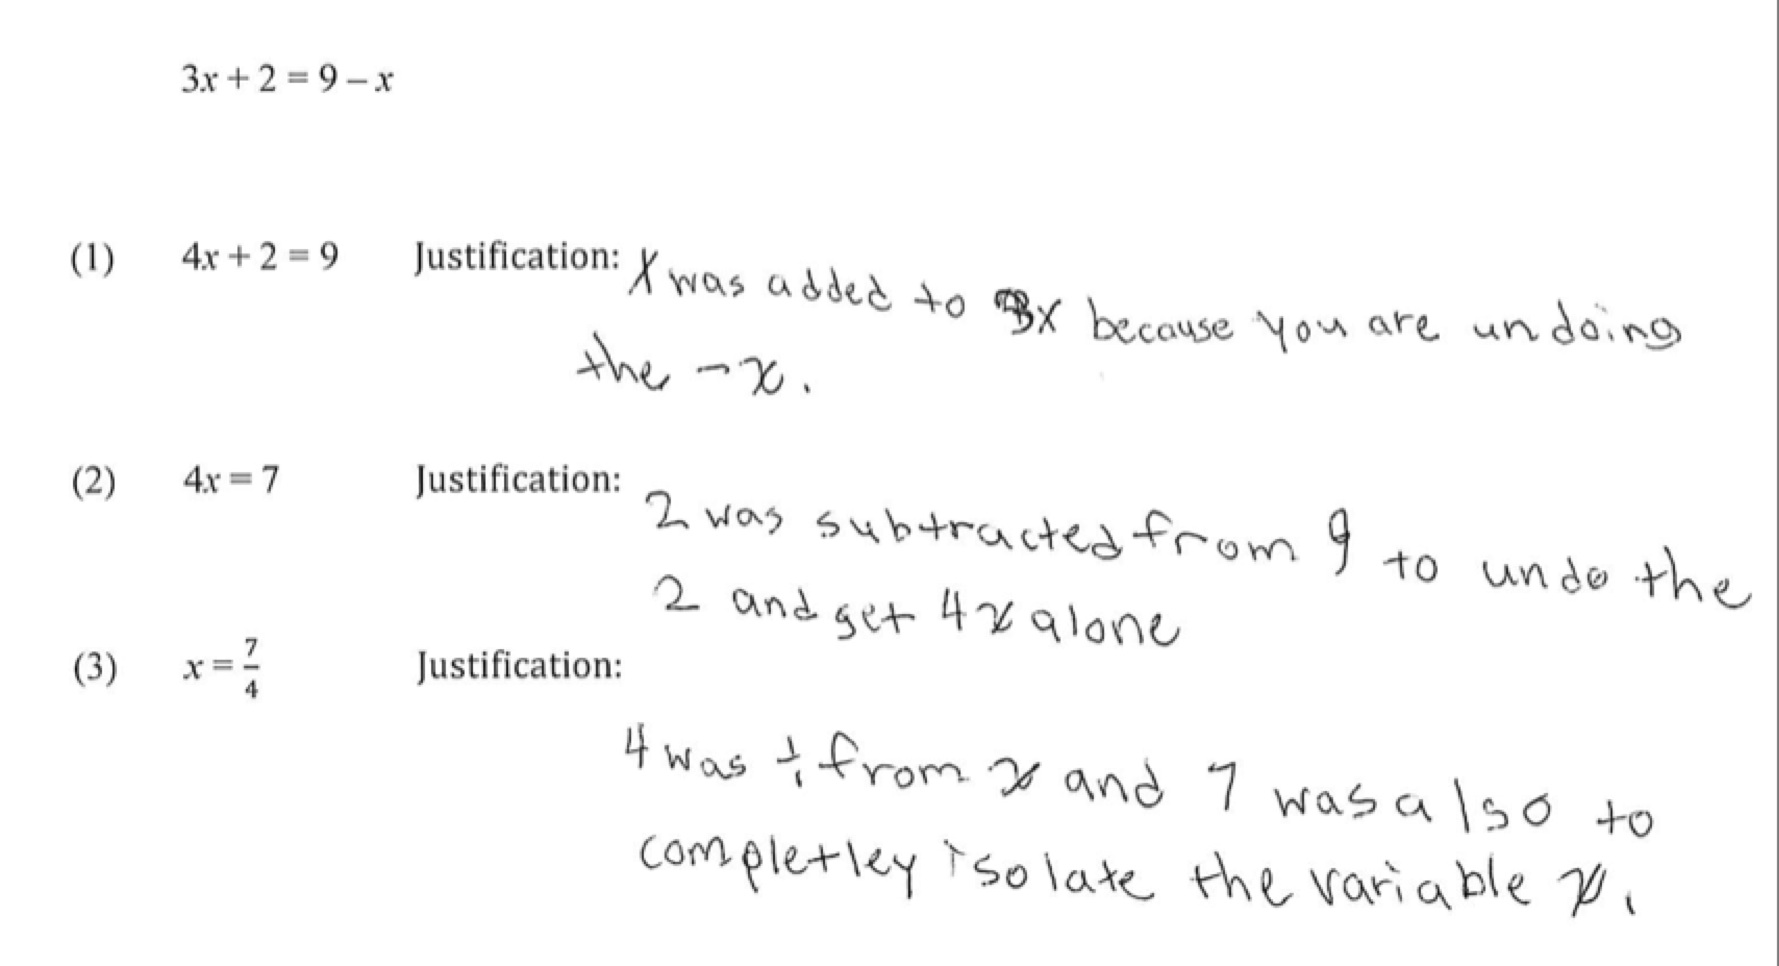 3x + 2 = 9 – x
(1) 4x + 2 = 9 Justification: X was added to 3x because you are undoing
the -x.
(2) 4x = 7 Justification:
2 was subtracted from 9 to undo the
2 and get 4x alone
(3) x = 7/4 Justification:
4 was ÷ from x and 7 was also to
completley isolate the variable x.